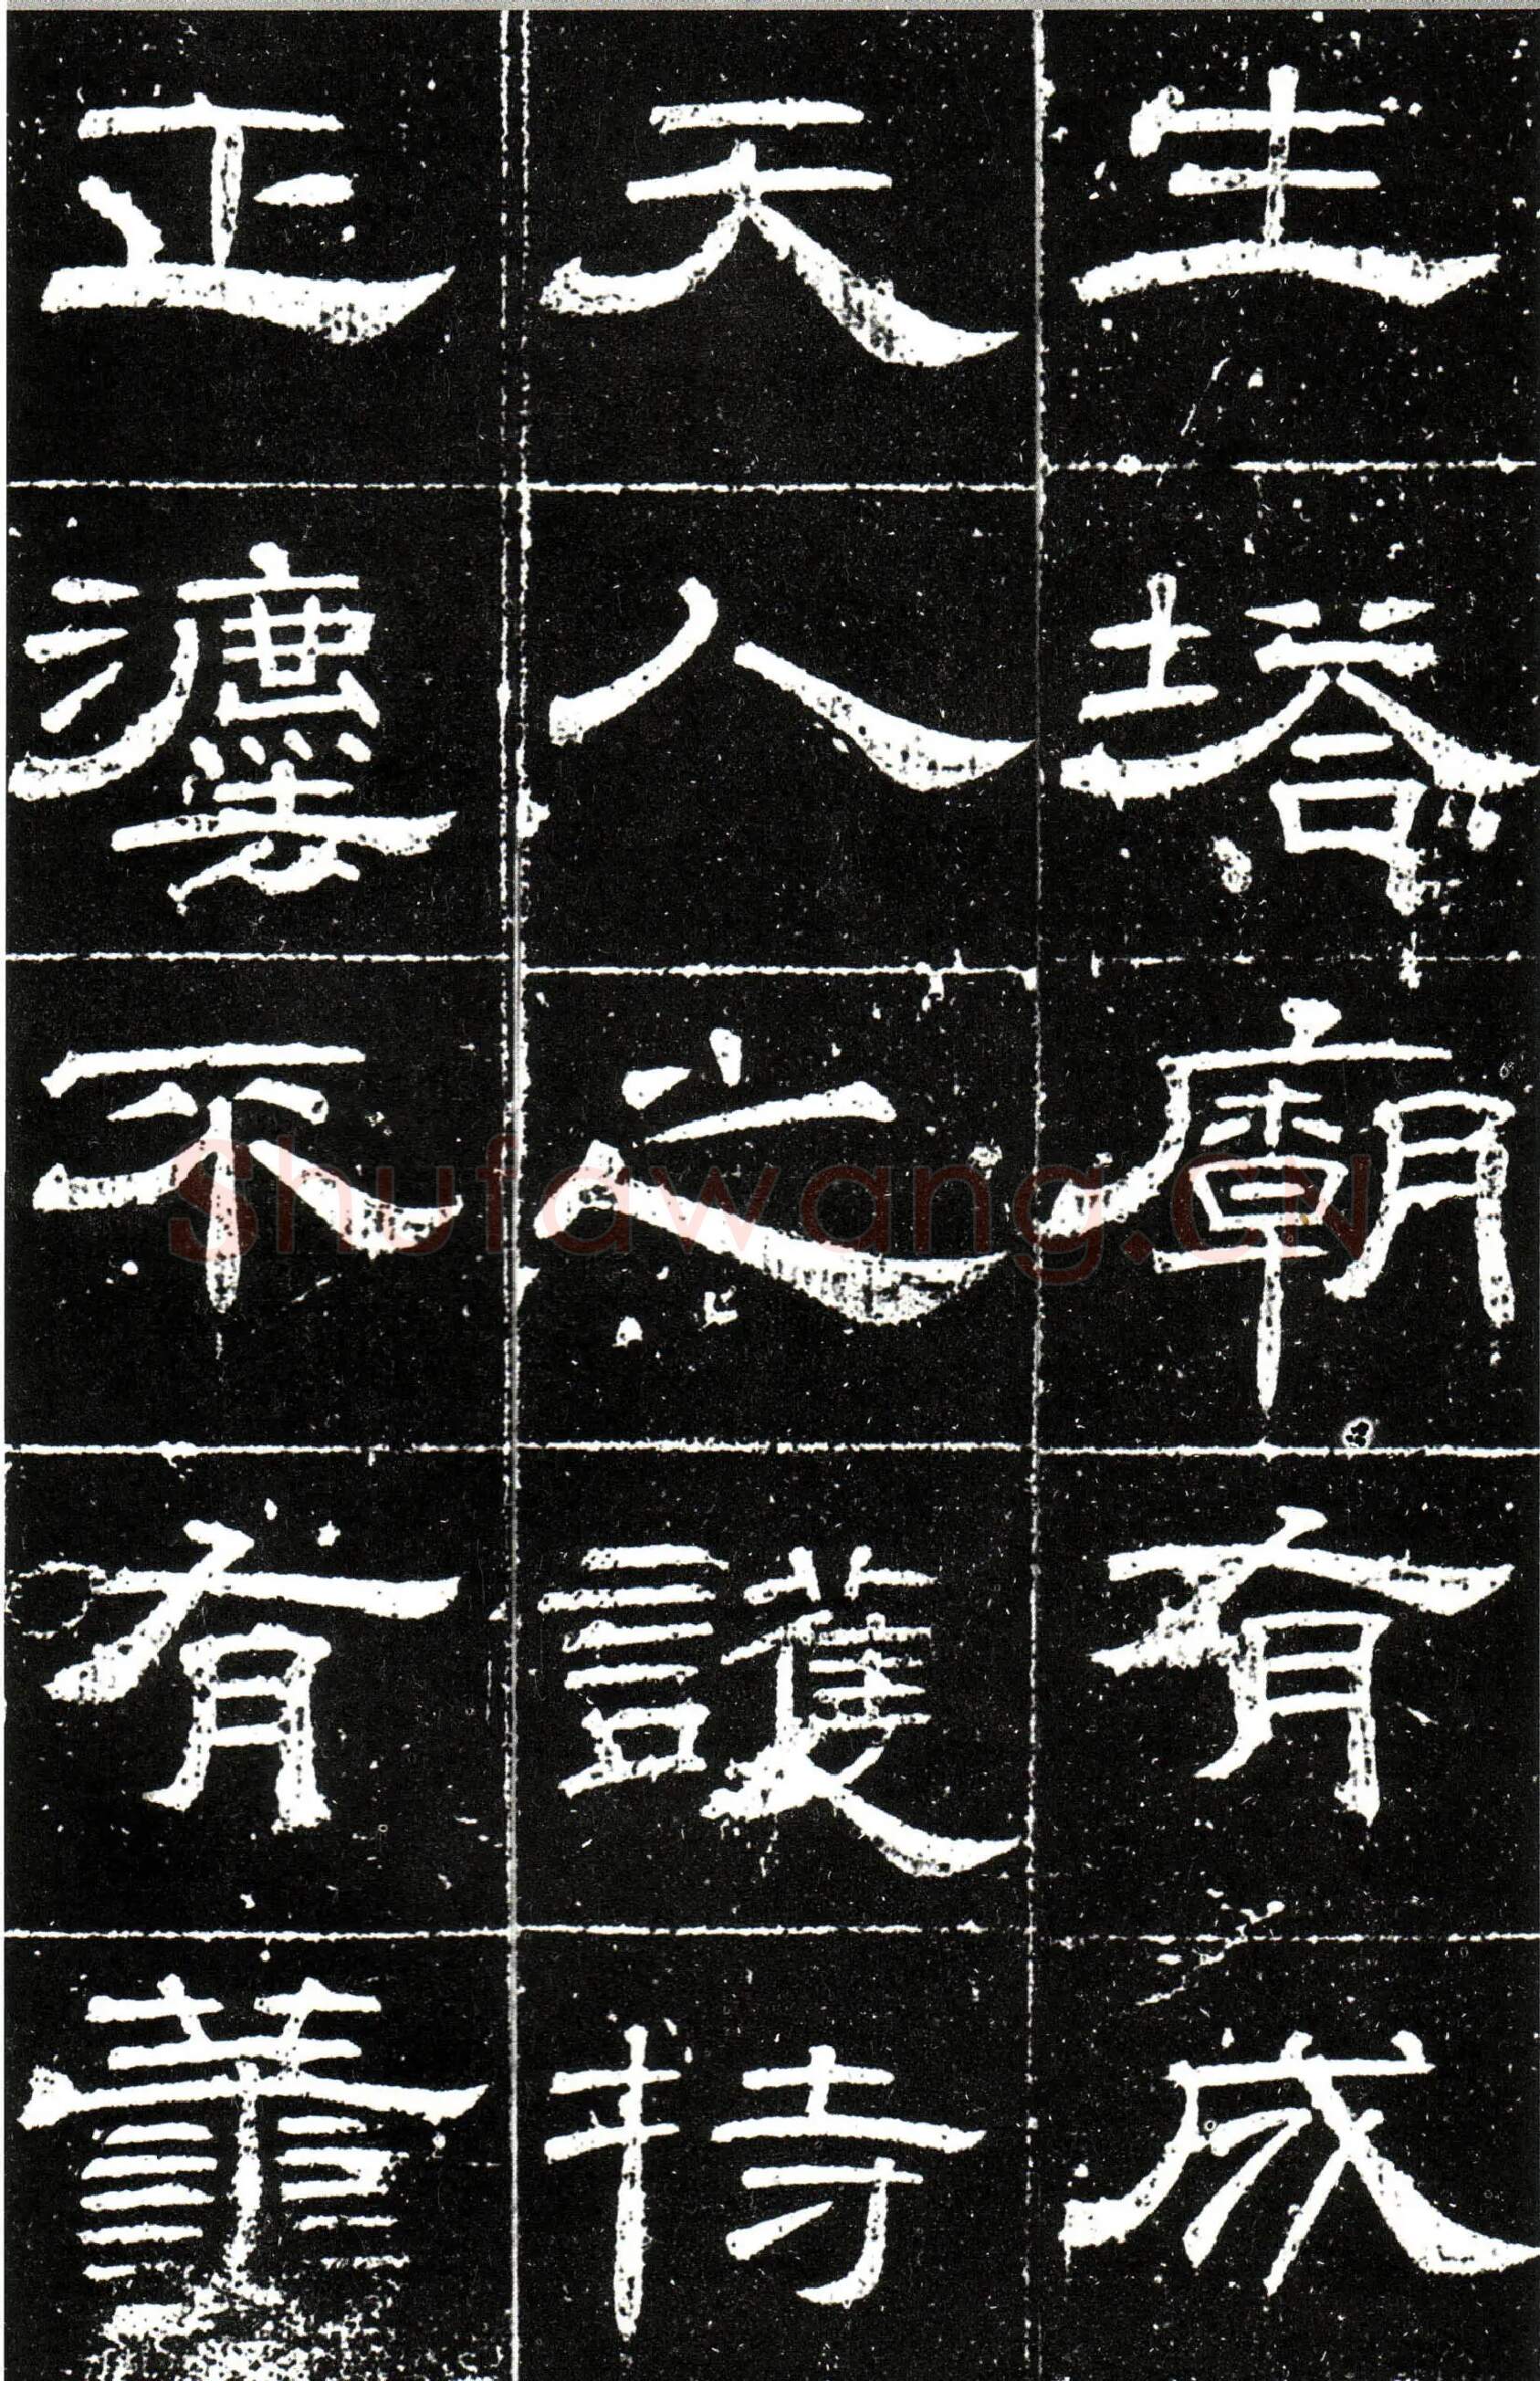 生塔廟有成
天人之護持
正灋不有華
Shufawang.CN